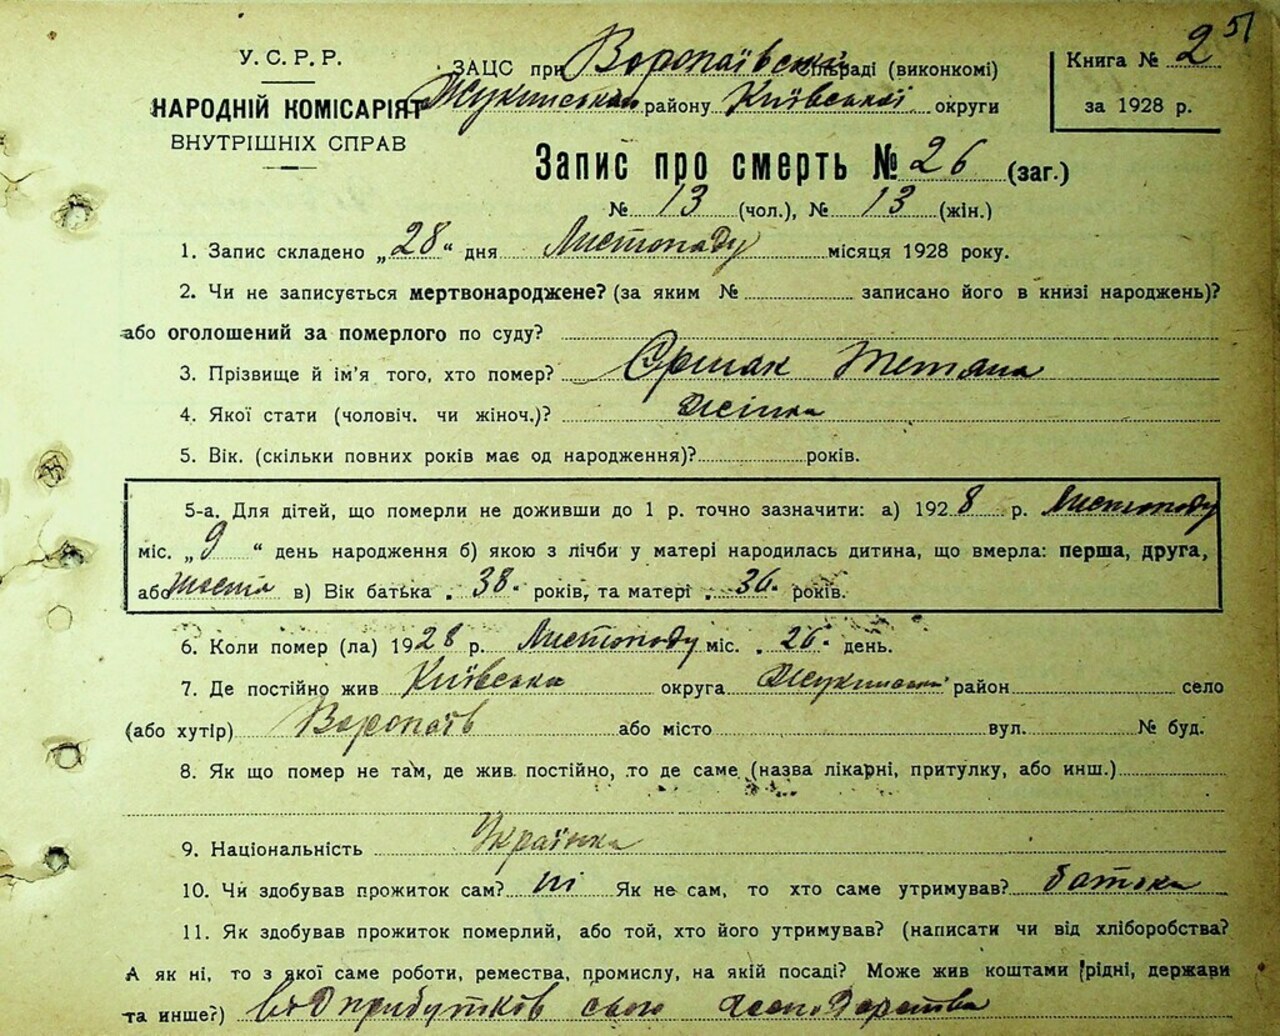 51
У. С. Р. Р.
НАРОДНІЙ КОМІСАРІЯТ
ВНУТРІШНІХ СПРАВ
ЗАЦС при Воропаївській сільраді (виконкомі)
Жукинського району Київської округи
Книга № 2
за 1928 р.
Запис про смерть № 26 (заг.)
№ 13 (чол.), № 13 (жін.)
1. Запис складено „28“ дня Листопаду місяця 1928 року.
2. Чи не записується мертвонароджене? (за яким № записано його в книзі народжень)?
або оголошений за померлого по суду?
3. Прізвище й ім’я того, хто помер? Єршак Тетяна
4. Якої стати (чоловіч. чи жіноч.)? жінка
5. Вік. (скільки повних років має од народження)? років.
5-а. Для дітей, що померли не доживши до 1 р. точно зазначити: а) 1928 р. Листопаду
міс. „9“ день народження б) якою з лічби у матері народилась дитина, що вмерла: перша, друга,
або шоста в) Вік батька 38 років, та матері 36 років.
6. Коли помер (ла) 1928 р. Листопаду міс. 26 день.
7. Де постійно жив Київська округа Жукинський район село
(або хутір) Воропаїв або місто вул. № буд.
8. Як що помер не там, де жив постійно, то де саме (назва лікарні, притулку, або инш.)
9. Національність Українка
10. Чи здобував прожиток сам? ні Як не сам, то хто саме утримував? батько
11. Як здобував прожиток померлий, або той, хто його утримував? (написати чи від хліборобства?
А як ні, то з якої саме роботи, ремества, промислу, на якій посаді? Може жив коштами рідні, держави
та инше?) від прибутків свого господарства